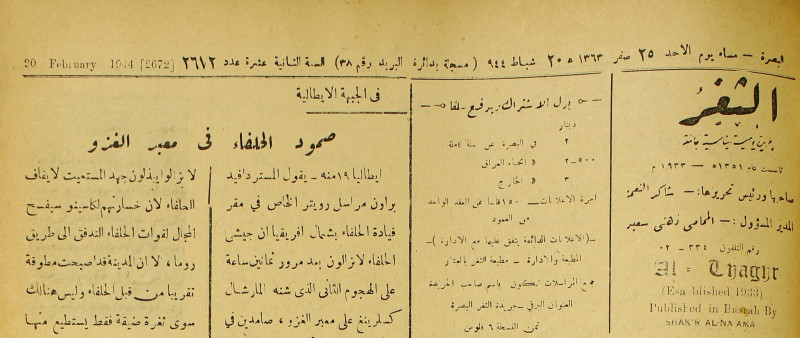 البصرة — مساء يوم الاحد ٢٥ صفر ١٣٦٣ ﻫ ٢٠ شباط ٩٤٤ ( مسجلة بدائرة البريد رقم ٣٨) السنة الثانية عشرة عدد ٢٦١٢
20 February 1944 [2672]
الثغر
يومية سياسية جامعة
تأسست عام ١٣٥١ ﻫ — ١٩٣٣ م
صاحبها ورئيس تحريرها:— شاكر النعمة
المدير المسؤول:— المحامي زهني سعيد
رقم التلفون ٢٣٤ — ٠٢
Al - Thaghr
(Esa blished 1933)
Published in Basrah By
SHAKIR AL-NA AMA
بدل الاشتراك يدفع سلفا
دينار
٢ في البصرة عن سنة كاملة
٢-٥٠٠ « انحاء العراق
٣ « الخارج
اجرة الاعلانات — ١٥٠ فلسا عن العقد الواحد
من العمود
—(الاعلانات الدائمة يتفق عليها مع الادارة )—
المطبعة والادارة — مطبعة الثغر بالعشار
جميع المراسلات تكون باسم صاحب الجريدة
العنوان البرقي — جريدة الثغر البصرة
ثمن النسخة ٦ فلوس
في الجبهة الايطالية
صمود الحلفاء في معبر الغزو
ايطاليا ١٩ منه — يقول المستر دافيد
براون مراسل رويتر الخاص في مقر
قيادة الحلفاء بشمال افريقيا ان جيشي
الحلفاء لا يزالون بعد مرور ثمانين ساعة
على الهجوم الثاني الذى شنه المارشال
كسلرينغ على معبر الغزو ، صامدين في
لا يزالوا يبذلون جهد المستميت لايقاف
الحلفاء لان خسارتهم لكاسينو سيفسح
المجال لقوات الحلفاء التدفق الى طريق
روما ، لان المدينة قد اصبحت مطوقة
تقريبا من قبل الحلفاء وليس هنالك
سوى ثغرة ضيقة فقط يستطيع منها